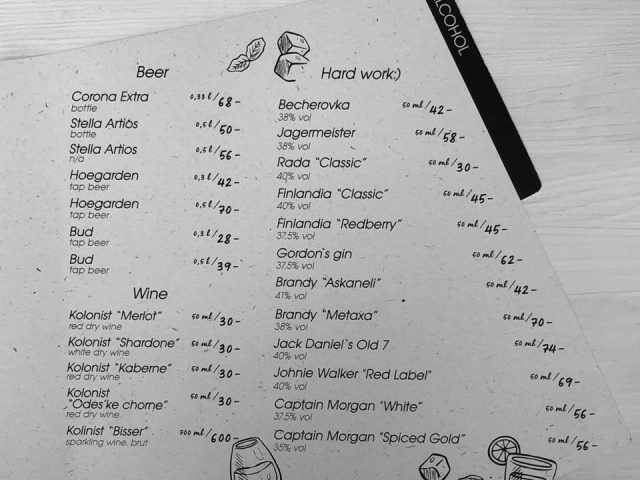 LCOHOL
Beer
Corona Extra 0,33 l/68-
bottle
Stella Artios 0,5 l/50-
bottle
Stella Artios 0,5 l/56-
n/a
Hoegarden 0,3 l/42-
tap beer
Hoegarden 0,5 l/70-
tap beer
Bud 0,3 l/28-
tap beer
Bud 0,5 l/39-
tap beer
Wine
Kolonist "Merlot" 50 ml/30-
red dry wine
Kolonist "Shardone" 50 ml/30-
white dry wine
Kolonist "Kaberne" 50 ml/30-
red dry wine
Kolonist
"Odes'ke chorne" 50 ml/30-
red dry wine
Kolinist "Bisser" 700 ml/600-
sparkling wine, brut
Hard work:)
Becherovka 50 ml/42-
38% vol
Jagermeister 50 ml/58-
38% vol
Rada "Classic" 50 ml/30-
40% vol
Finlandia "Classic" 50 ml/45-
40% vol
Finlandia "Redberry" 50 ml/45-
37,5% vol
Gordon`s gin 50 ml/62-
37,5% vol
Brandy "Askaneli" 50 ml/42-
41% vol
Brandy "Metaxa" 50 ml/70-
38% vol
Jack Daniel`s Old 7 50 ml/74-
40% vol
Johnie Walker "Red Label" 50 ml/69-
40% vol
Captain Morgan "White" 50 ml/56-
37,5% vol
Captain Morgan "Spiced Gold" 50 ml/56-
35% vol